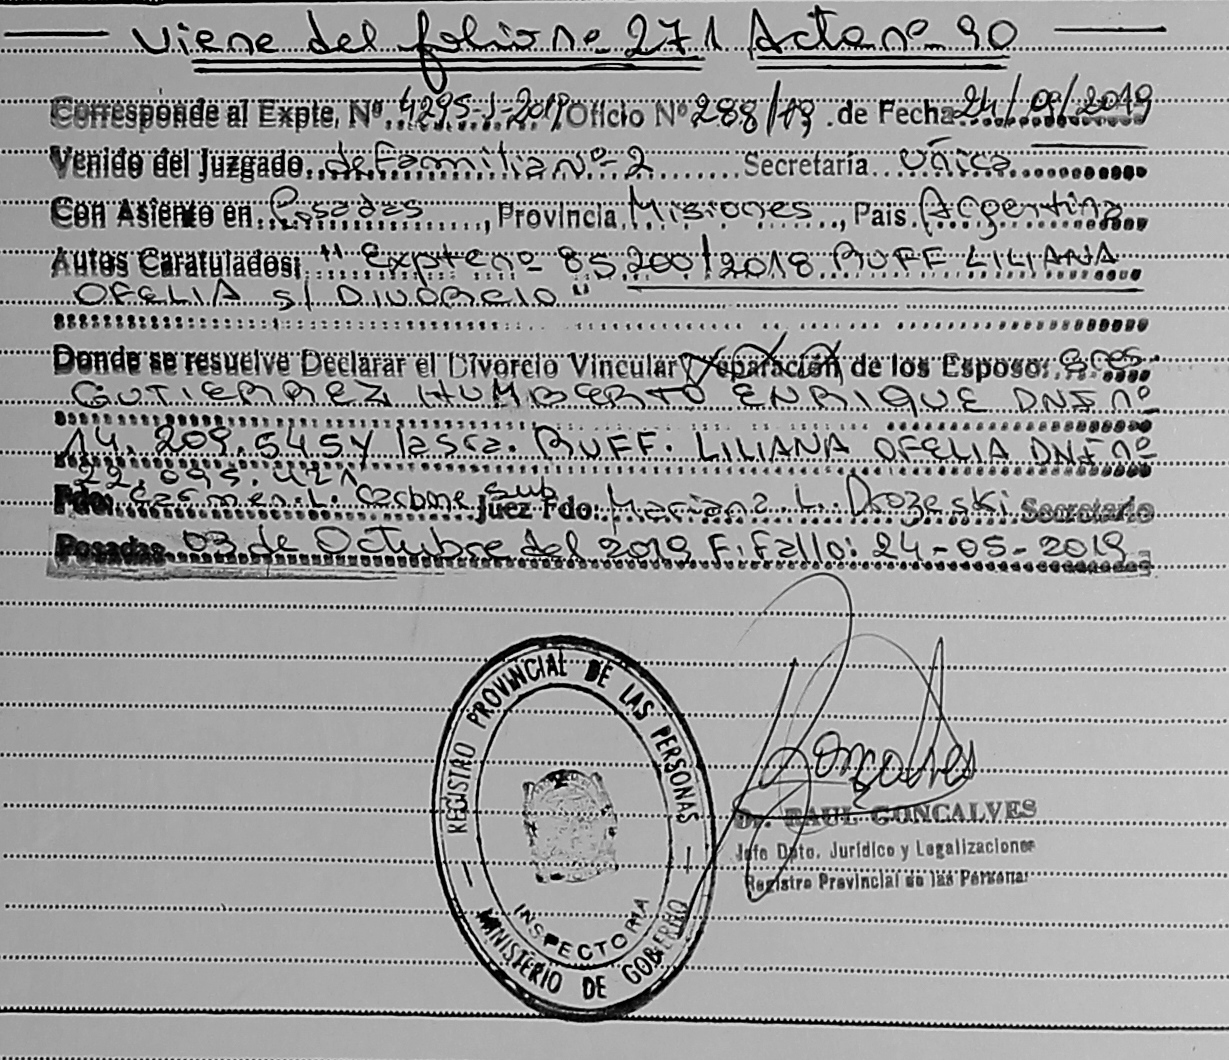 Viene del folio nº 271 Acta nº 90
Corresponde al Expte. Nº 4295-J-2019 Oficio Nº 288/19 de Fecha 24/09/2019
Venido del Juzgado de Familia nº 2 Secretaría Única
Con Asiento en Posadas, Provincia Misiones, Pais Argentina
Autos Caratulados: "Expte nº 85200/2018 RUFF LILIANA
OFELIA s/ DIVORCIO"
Donde se resuelve Declarar el Divorcio Vincular, Separación de los Esposos: Sres.
GUTIERREZ HUMBERTO ENRIQUE DNI nº
14.209.545 y la sra. RUFF. LILIANA OFELIA DNI nº
22.095.421
Fdo: Carmen L. Carbone Sub Juez Fdo: Mariana L. Drozeski Secretario
Posadas 03 de Octubre del 2019 F. Fallo: 24-05-2019
REGISTRO PROVINCIAL DE LAS PERSONAS
INSPECTORIA
MINISTERIO DE GOBIERNO
Goncalves
Dr. RAUL GONCALVES
Jefe Dpto. Jurídico y Legalizaciones
Registro Provincial de las Personas